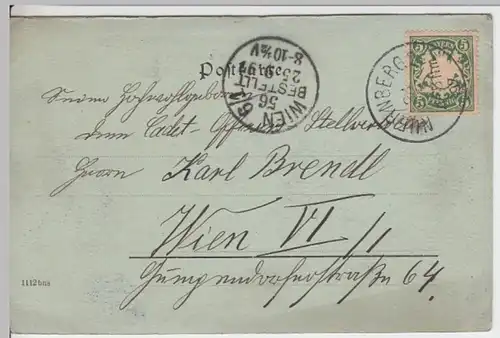 Postkarte
WIEN 6/1
56
BESTELLT
8-10½V
NÜRNBERG
5 5
5 5
Seiner Hochwohlgeboren
dem Cadet-Offizier Stellvertr
Herrn Karl Brendl
Wien VI/1
Gumpendorferstraße 64.